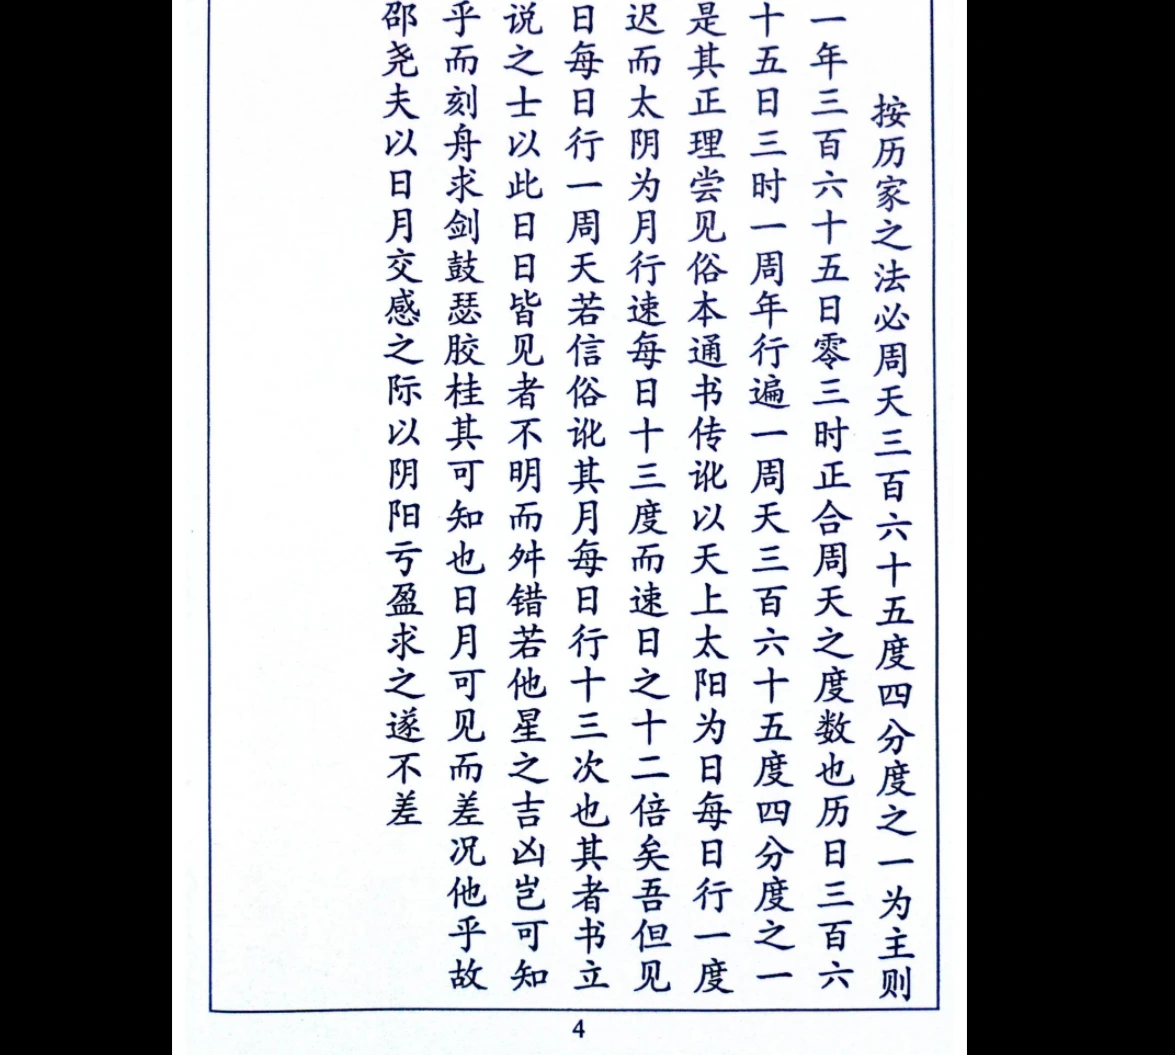 按历家之法必周天三百六十五度四分度之一为主则
一年三百六十五日零三时正合周天之度数也历日三百六
十五日三时一周年行遍一周天三百六十五度四分度之一
是其正理尝见俗本通书传讹以天上太阳为日每日行一度
迟而太阴为月行速每日十三度而速日之十二倍矣吾但见
日每日行一周天若信俗讹其月每日行十三次也其者书立
说之士以此日日皆见者不明而舛错若他星之吉凶岂可知
乎而刻舟求剑鼓瑟胶桂其可知也日月可见而差况他乎故
邵尧夫以日月交感之际以阴阳亏盈求之遂不差
4